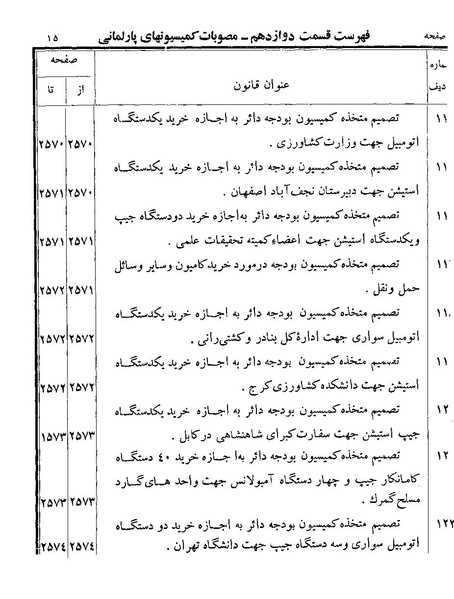 صفحه فهرست قسمت دوازدهم ـ مصوبات کمیسیونهای پارلمانی ۱۵
ماره عنوان قانون صفحه
دیف از تا
۱۱ تصمیم متخذه کمیسیون بودجه دائر به اجازه خرید یکدستگاه
اتومبیل جهت وزارت کشاورزی . ۲۵۷۰ ۲۵۷۰
۱۱ تصمیم متخذه کمیسیون بودجه دائر به اجازه خرید یکدستگاه
استیشن جهت دبیرستان نجف‌آباد اصفهان . ۲۵۷۰ ۲۵۷۱
۱۱ تصمیم متخذه کمیسیون بودجه دائر به‌اجازه خرید دودستگاه جیپ
ویکدستگاه استیشن جهت اعضاء کمیته تحقیقات علمی . ۲۵۷۱ ۲۵۷۱
۱۱ تصمیم متخذه کمیسیون بودجه درمورد خرید کامیون وسایر وسائل
حمل ونقل . ۲۵۷۱ ۲۵۷۲
۱۱ تصمیم متخذه کمیسیون بودجه دائر به اجازه خرید یکدستگاه
اتومبیل سواری جهت ادارهٔ کل بنادر و کشتی‌رانی . ۲۵۷۲ ۲۵۷۲
۱۱ تصمیم متخذه کمیسیون بودجه دائر به اجازه خرید یکدستگاه
استیشن جهت دانشکده کشاورزی کرج . ۲۵۷۲ ۲۵۷۲
۱۲ تصمیم متخذه کمیسیون بودجه دائر به اجازه خرید یکدستگاه
جیپ استیشن جهت سفارت کبرای شاهنشاهی در کابل . ۲۵۷۳ ۱۵۷۳
۱۲ تصمیم متخذه کمیسیون بودجه دائر به‌اجازه خرید ۴۰ دستگاه
کامانکار جیپ و چهار دستگاه آمبولانس جهت واحد های گارد
مسلح گمرک . ۲۵۷۳ ۲۵۷۳
۱۲۲ تصمیم متخذه کمیسیون بودجه دائر به اجازه خرید دو دستگاه
اتومبیل سواری وسه دستگاه جیپ جهت دانشگاه تهران . ۲۵۷۴ ۲۵۷۴